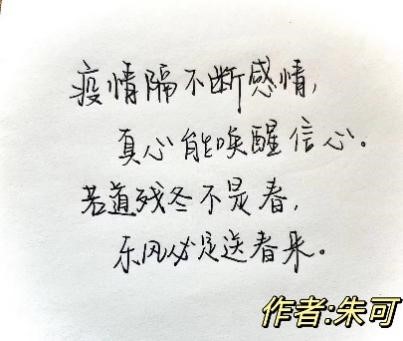 疫情隔不断感情，
真心能唤醒信心。
若道残冬不是春，
东风必定送春来。
作者:朱可